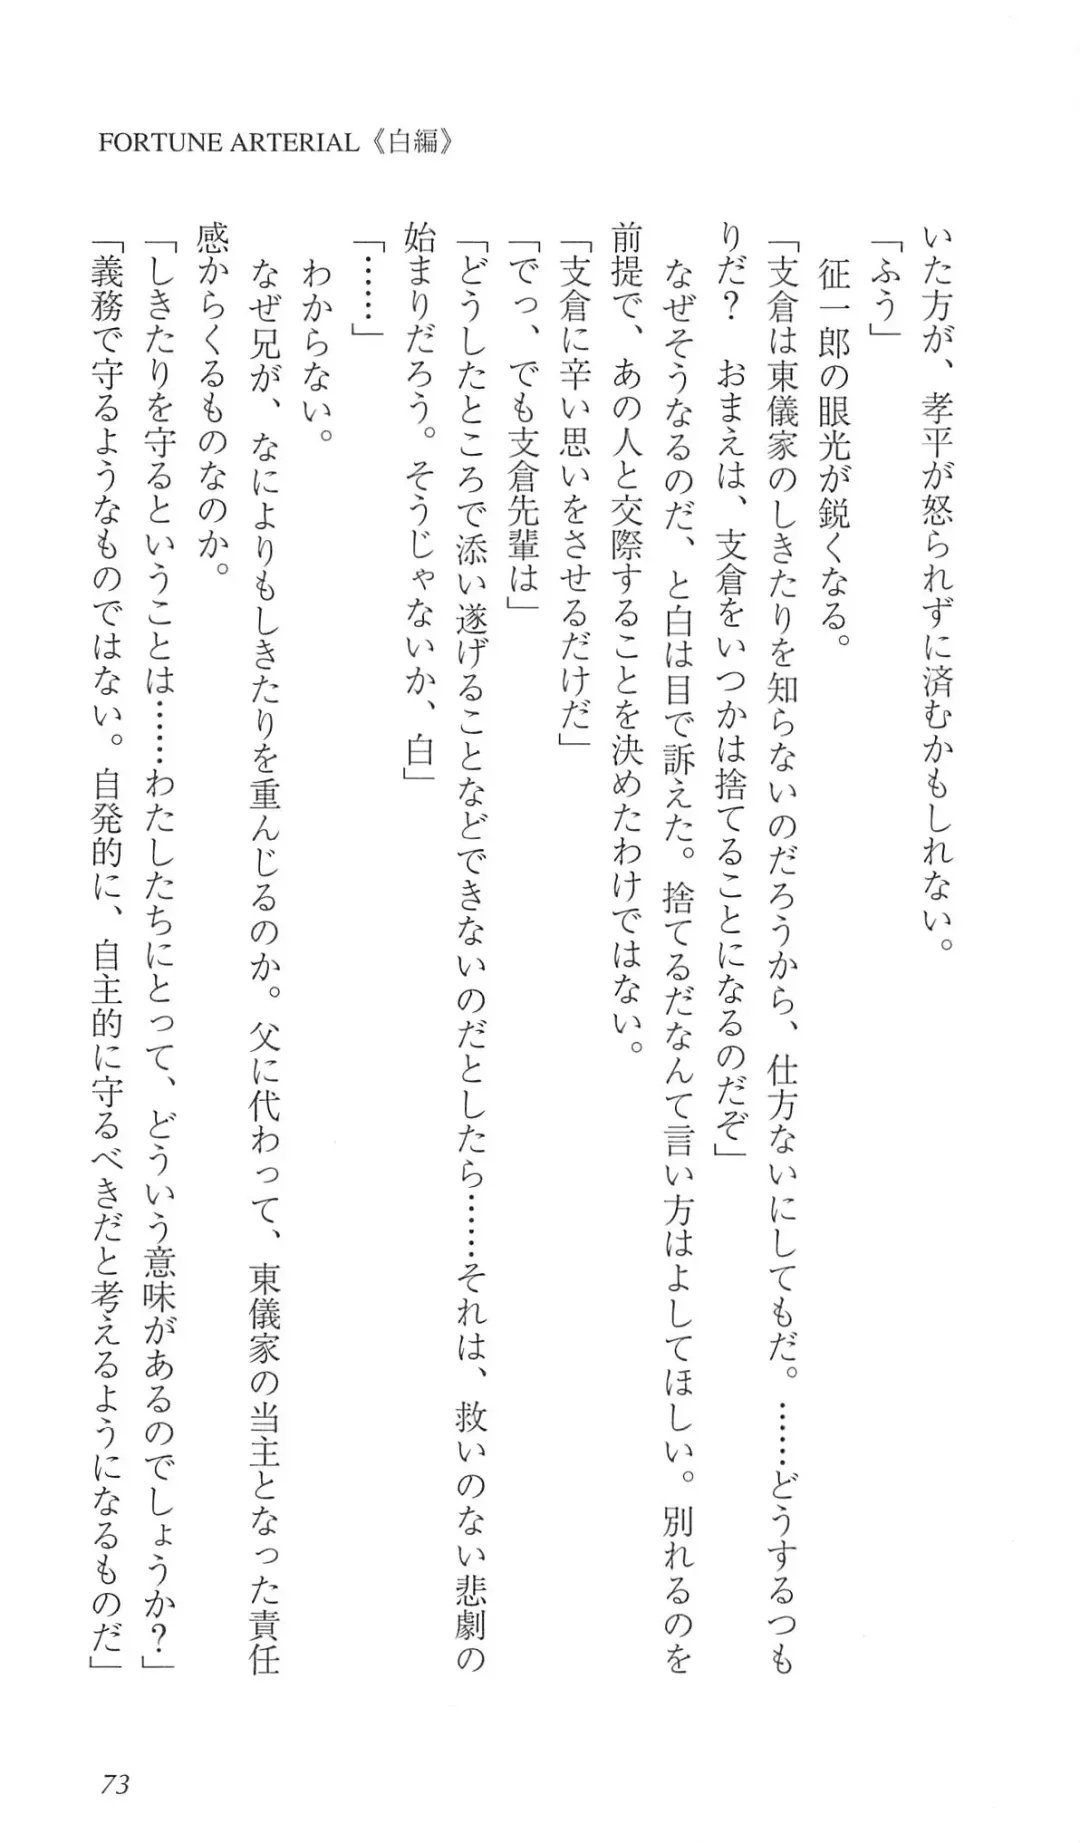 FORTUNE ARTERIAL《白編》
いた方が、孝平が怒られずに済むかもしれない。
「ふう」
征一郎の眼光が鋭くなる。
「支倉は東儀家のしきたりを知らないのだろうから、仕方ないにしてもだ。……どうするつも
りだ？　おまえは、支倉をいつかは捨てることになるのだぞ」
なぜそうなるのだ、と白は目で訴えた。捨てるだなんて言い方はよしてほしい。別れるのを
前提で、あの人と交際することを決めたわけではない。
「支倉に辛い思いをさせるだけだ」
「でっ、でも支倉先輩は」
「どうしたところで添い遂げることなどできないのだとしたら……それは、救いのない悲劇の
始まりだろう。そうじゃないか、白」
「……」
わからない。
なぜ兄が、なによりもしきたりを重んじるのか。父に代わって、東儀家の当主となった責任
感からくるものなのか。
「しきたりを守るということは……わたしたちにとって、どういう意味があるのでしょうか？」
「義務で守るようなものではない。自発的に、自主的に守るべきだと考えるようになるものだ」
73